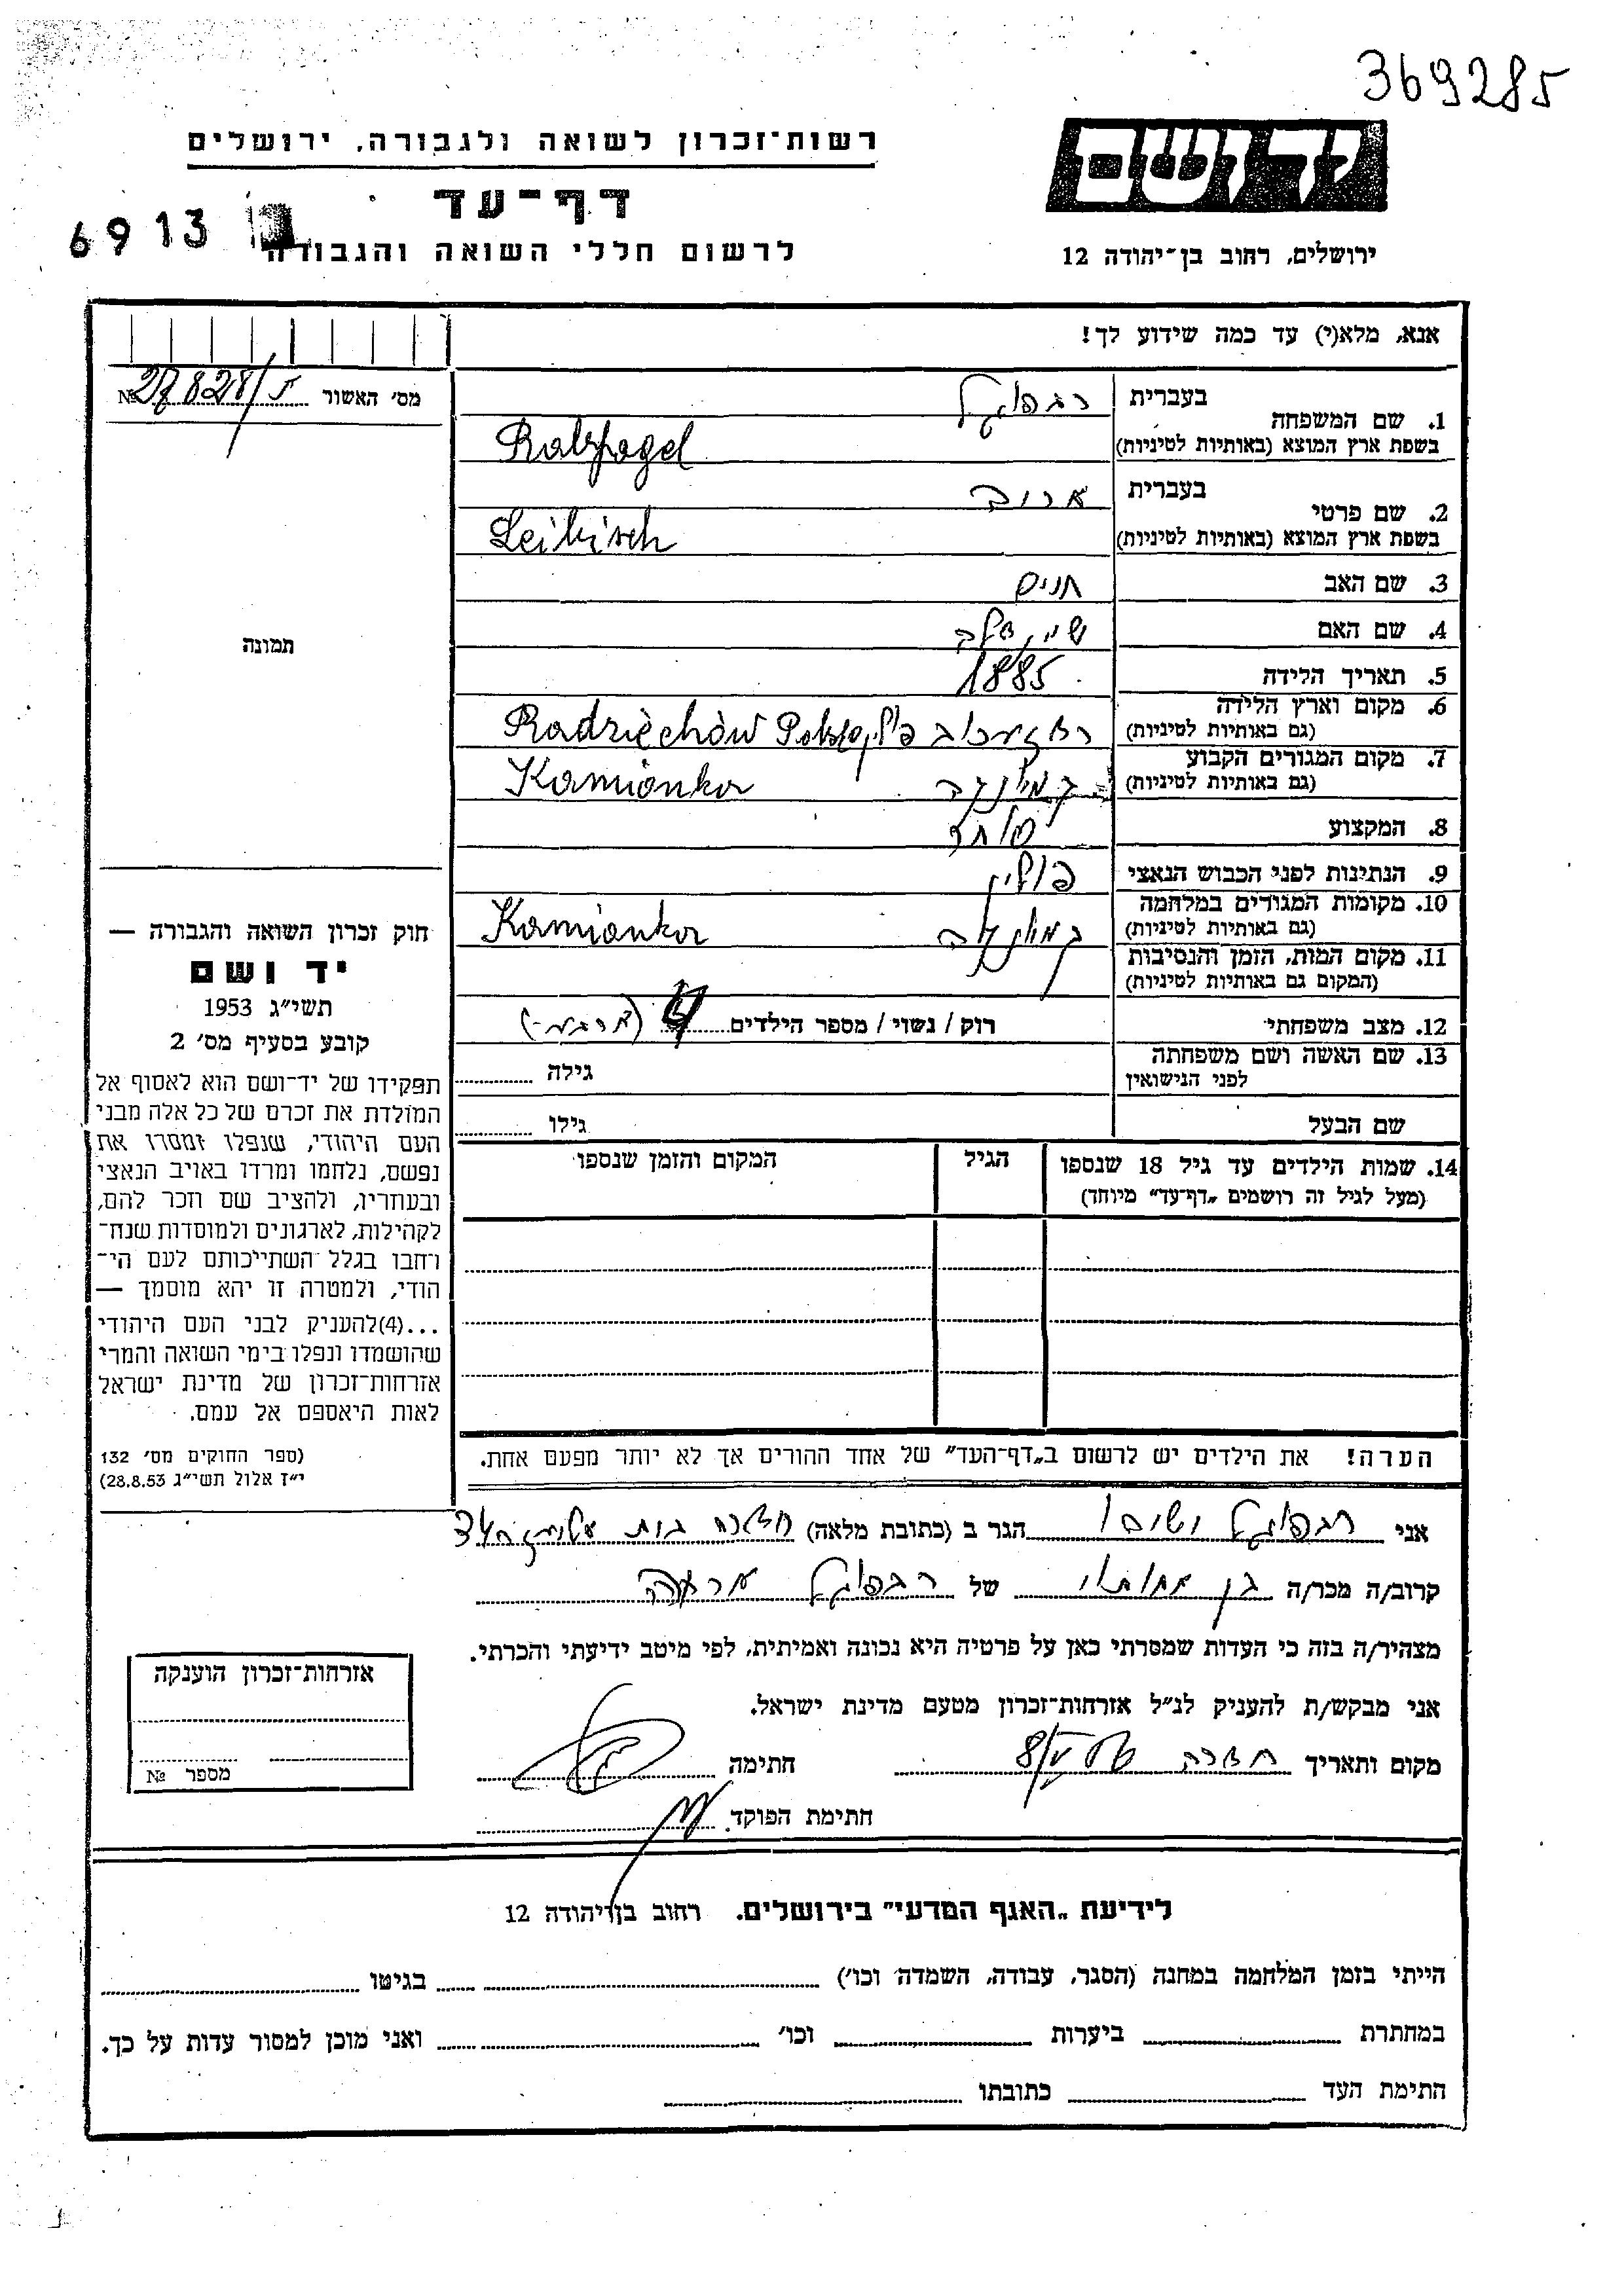 369285
יד ושם
רשות־זכרון לשואה ולגבורה, ירושלים
דף־עד
6913
לרשום חללי השואה והגבורה
ירושלים, רחוב בן־יהודה 12
אנא, מלא(י) עד כמה שידוע לך!
מס' האשור № 27828/5
1. שם המשפחה
בעברית
בשפת ארץ המוצא (באותיות לטיניות)
2. שם פרטי
בעברית
בשפת ארץ המוצא (באותיות לטיניות) Leikisch
3. שם האב
4. שם האם
5. תאריך הלידה 1885
6. מקום וארץ הלידה
(גם באותיות לטיניות) Radziechów
7. מקום המגורים הקבוע
(גם באותיות לטיניות) קמיונקה Kamionka
8. המקצוע סוחר
9. הנתינות לפני הכבוש הנאצי פולין
10. מקומות המגורים במלחמה
(גם באותיות לטיניות) קמיונקה Kamionka
11. מקום המות, הזמן והנסיבות
(המקום גם באותיות לטיניות)
12. מצב משפחתי
רוק / נשוי / מספר הילדים 4
13. שם האשה ושם משפחתה
לפני הנישואין
גילה
שם הבעל
גילו
14. שמות הילדים עד גיל 18 שנספו
(מעל לגיל זה רושמים „דף־עד" מיוחד)
הגיל
המקום והזמן שנספו
הערה! את הילדים יש לרשום ב„דף־העד" של אחד ההורים אך לא יותר מפעם אחת.
תמונה
חוק זכרון השואה והגבורה —
יד ושם
תשי"ג 1953
קובע בסעיף מס' 2
תפקידו של יד־ושם הוא לאסוף אל
המולדת את זכרם של כל אלה מבני
העם היהודי, שנפלו ומסרו את
נפשם, נלחמו ומרדו באויב הנאצי
ובעוזריו, ולהציב שם וזכר להם,
לקהילות, לארגונים ולמוסדות שנח־
רחבו בגלל השתייכותם לעם הי־
הודי, ולמטרה זו יהא מוסמך —
...(4)להעניק לבני העם היהודי
שהושמדו ונפלו בימי השואה והמרי
אזרחות־זכרון של מדינת ישראל
לאות היאספם אל עמם.
(ספר החוקים מס' 132
י"ז אלול תשי"ג 28.8.53)
אני
הגר ב (כתובת מלאה) חדרה
קרוב/ה מכר/ה בן
של
מצהיר/ה בזה כי העדות שמסרתי כאן על פרטיה היא נכונה ואמיתית, לפי מיטב ידיעתי והכרתי.
אני מבקש/ת להעניק לנ"ל אזרחות־זכרון מטעם מדינת ישראל.
מקום ותאריך חדרה
חתימה
חתימת הפוקד
אזרחות־זכרון הוענקה
מספר №
לידיעת „האגף המדעי" בירושלים. רחוב בן־יהודה 12
הייתי בזמן המלחמה במחנה (הסגר, עבודה, השמדה וכו')
בגיטו
במחתרת
ביערות
וכו'
ואני מוכן למסור עדות על כך.
חתימת העד
כתובתו